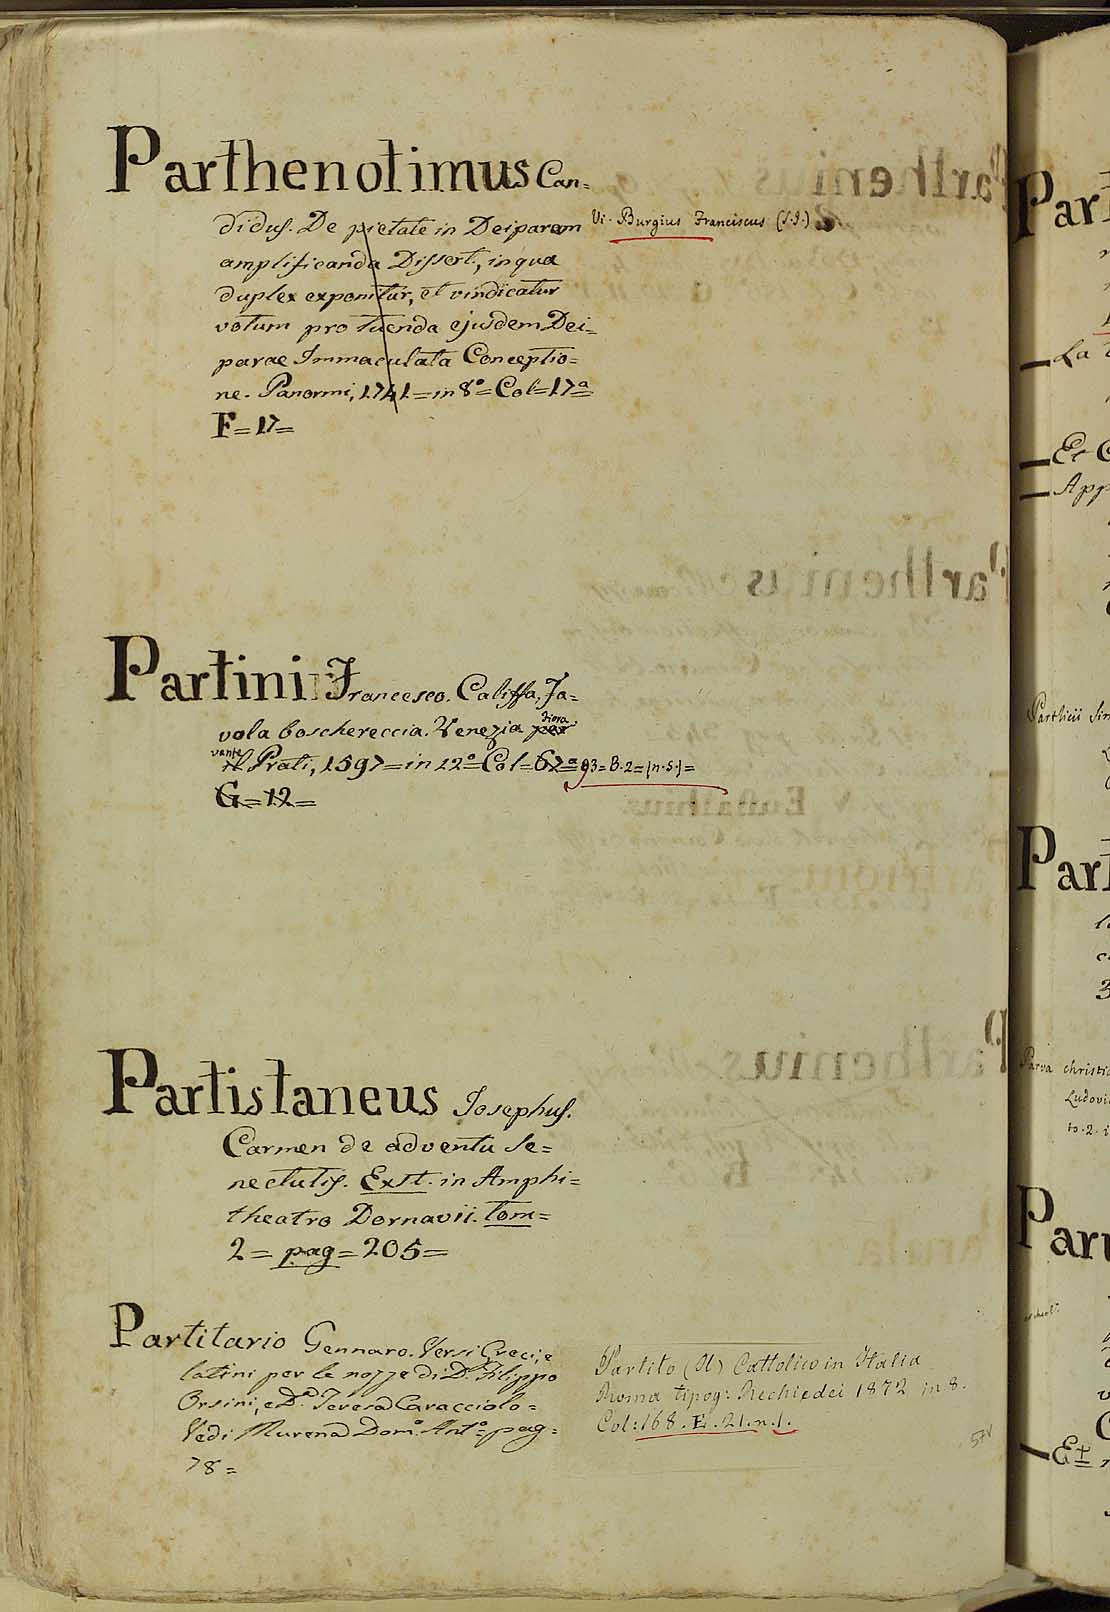 Parthenotimus Can=
didus. De pietate in Deiparam Vi. Burgius Franciscus (S.J.)
amplificanda Dissert., in qua
duplex exponitur, et vindicatur
votum pro tuenda ejusdem Dei=
parae Immaculata Conceptio=
ne. Panormi, 1741=in 8º=Col=17ª=
F=17=
Partini Francesco. Califfa, Fa=
vola boschereccia. Venezia per Fiora
vante il Prati, 1597=in 12º=Col=67ª 93=B.2=(n.5.)=
G=12=
Partistaneus Josephus.
Carmen de adventu Se=
nectutis. Extt. in Amphi=
theatro Dornavii. tom=
2=pag=205=
Partitario Gennaro. Versi Greci, e
latini per le nozze di D. Filippo
Orsini, e D. Teresa Caracciolo=
Vedi Murena Dom. Antº=pag=
78=
Partito (Il) Cattolico in Italia
Roma tipog: Rechiedei 1872 in 8.
Col: 168. E. 21. n. 1.
Part
La
Et
App
Parthii Sin
Part
Parva christi
Ludovi
to. 2. i
Paru
Et